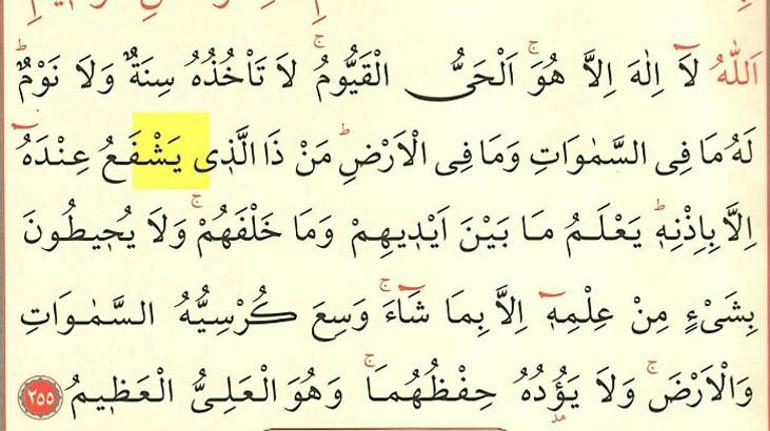 اَللّٰهُ لَٓا اِلٰهَ اِلَّا هُوَۚ اَلْحَيُّ الْقَيُّومُۚ لَا تَأْخُذُهُ سِنَةٌ وَلَا نَوْمٌۜ
لَهُ مَا فِي السَّمٰوَاتِ وَمَا فِي الْاَرْضِۜ مَنْ ذَا الَّذ۪ي يَشْفَعُ عِنْدَهُٓ
اِلَّا بِاِذْنِه۪ۜ يَعْلَمُ مَا بَيْنَ اَيْد۪يهِمْ وَمَا خَلْفَهُمْۚ وَلَا يُح۪يطُونَ
بِشَيْءٍ مِنْ عِلْمِه۪ٓ اِلَّا بِمَا شَٓاءَۚ وَسِعَ كُرْسِيُّهُ السَّمٰوَاتِ
وَالْاَرْضَۚ وَلَا يَؤُ۫دُهُ حِفْظُهُمَاۚ وَهُوَ الْعَلِيُّ الْعَظ۪يمُ ٢٥٥